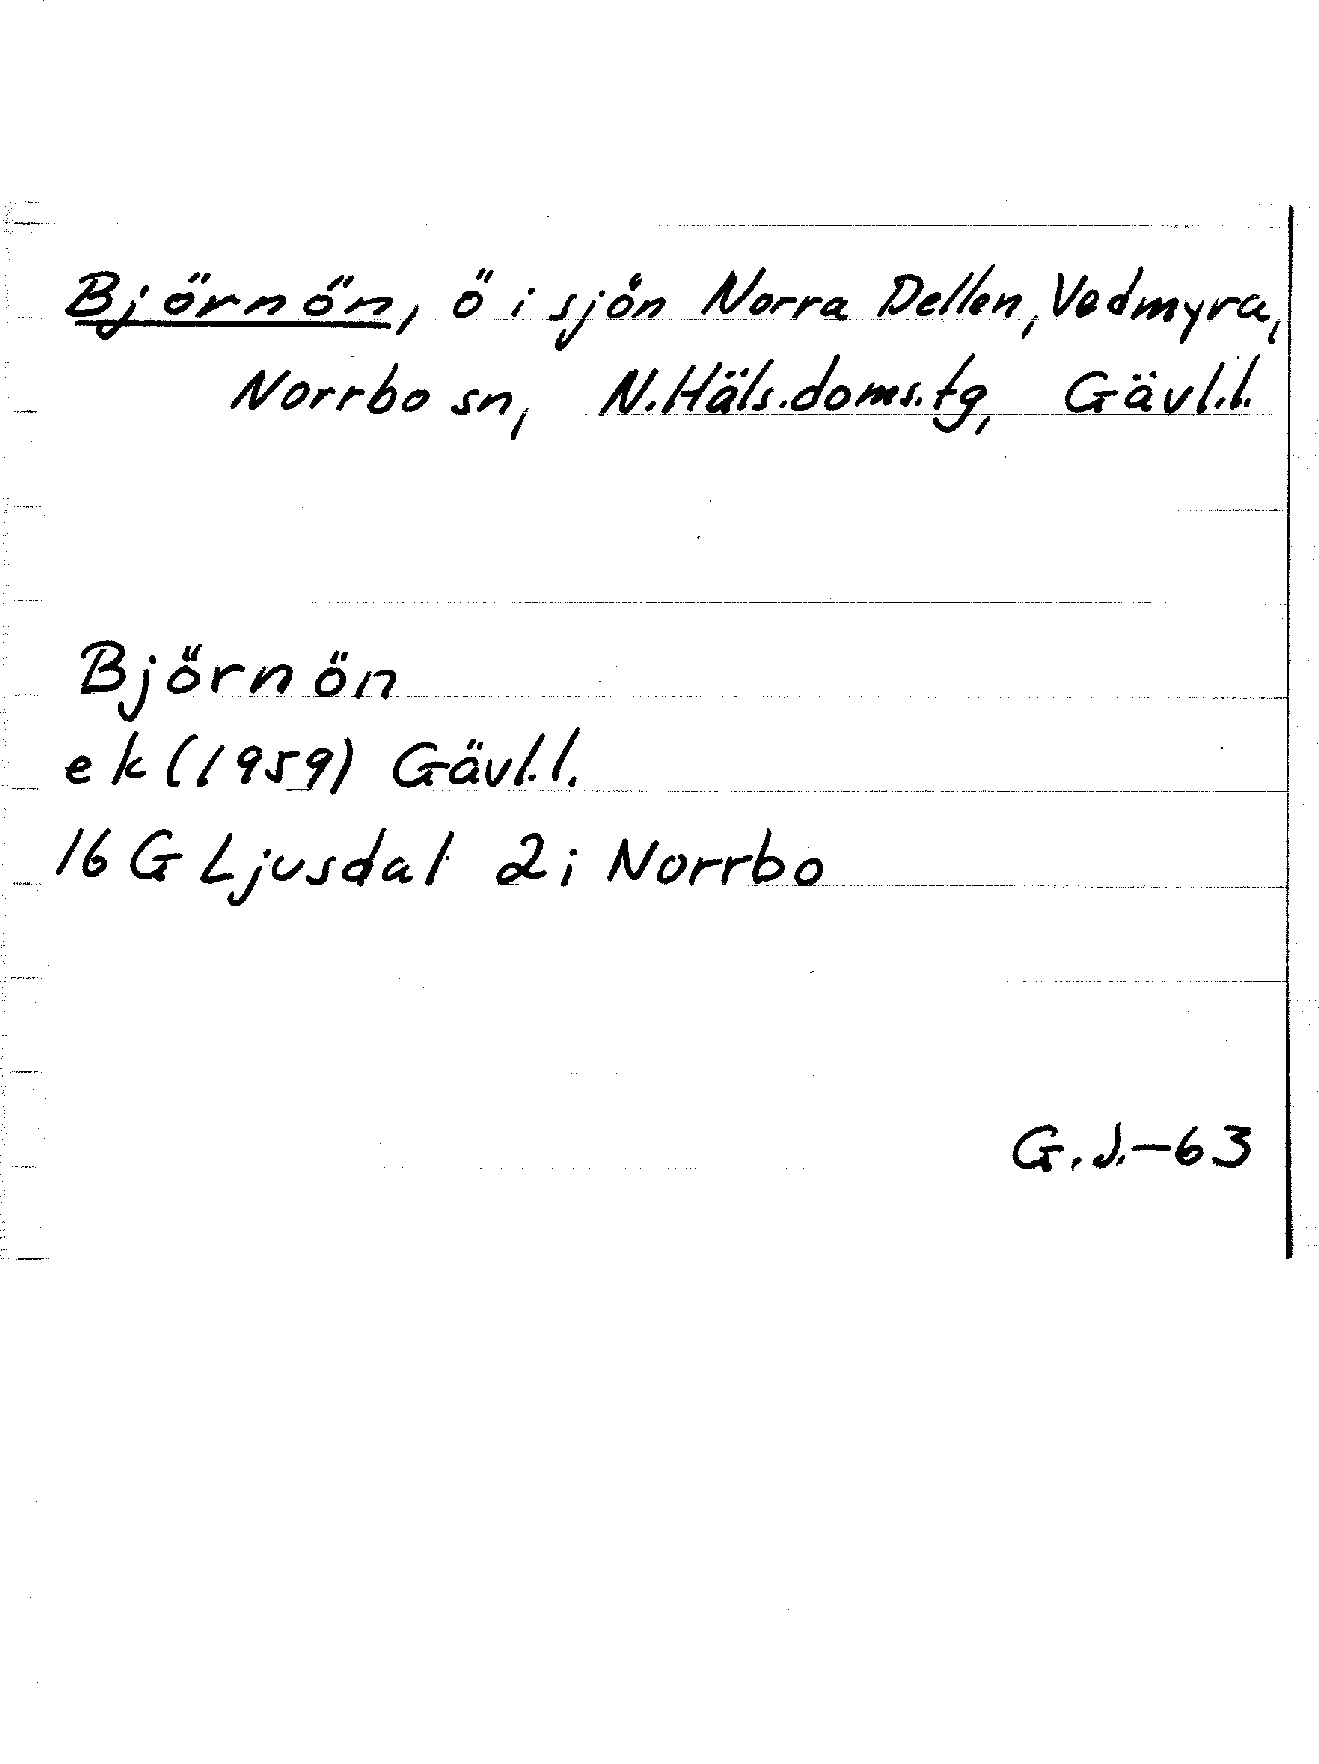 Björnön, ö i sjön Norra Dellen, Vedmyra,
Norrbo sn, N.Häls.doms.tg, Gävl.l.
Björnön
ek (1959) Gävl.l.
16 G Ljusdal 2i Norrbo
G.J.-63